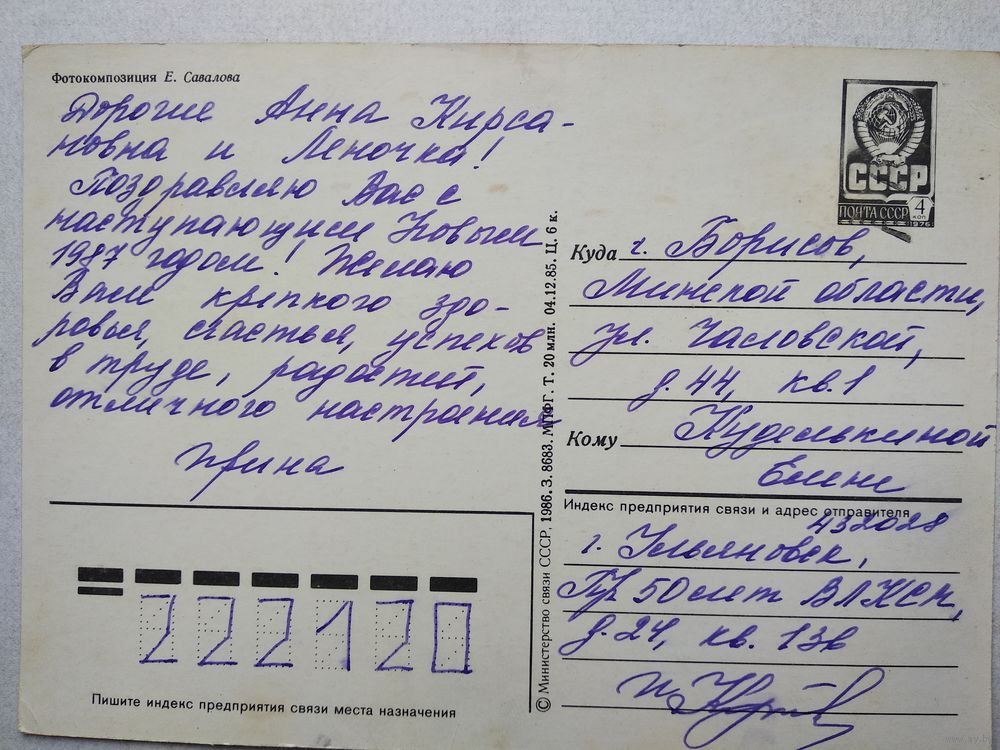 Фотокомпозиция Е. Савалова
Дорогие Анна Кирса-
новна и Леночка!
Поздравляю Вас с
наступающим Новым
1987 годом! Желаю
Вам крепкого здо-
ровья, счастья, успехов
в труде, радостей,
отличного настроения
Ирина
СССР
ПОЧТА СССР 4 КОП
1976
Куда г. Борисов,
Минской области,
ул. Чаловской,
д. 44, кв. 1
Кому Куделькиной
Елене
Индекс предприятия связи и адрес отправителя
432028
г. Ульяновск,
Пр. 50 лет ВЛКСМ,
д. 24, кв. 136
222120
Пишите индекс предприятия связи места назначения
© Министерство связи СССР, 1986. З. 8683. МПФГ. Т. 20 млн. 04.12.85. Ц. 6 к.